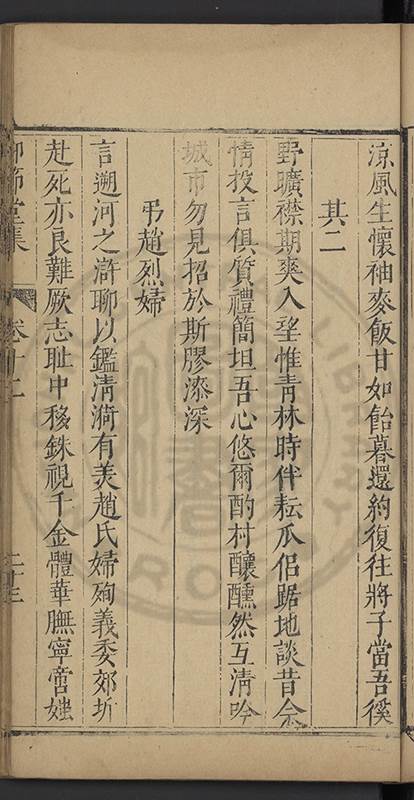 涼風生懷袖麥飯甘如飴暮還約復往將子當吾徯
其二
野曠襟期爽入望惟青林時伴耘瓜侶踞地談昔今
情投言俱質禮簡坦吾心悠爾酌村釀醺然互清吟
城市勿見招於斯膠漆深
弔趙烈婦
言遡河之滸聊以鑑清漪有美趙氏婦殉義委郊圻
赴死亦良難厥志耻中移銖視千金體華膴寧啻媸
仰節堂集
卷十二
二十三